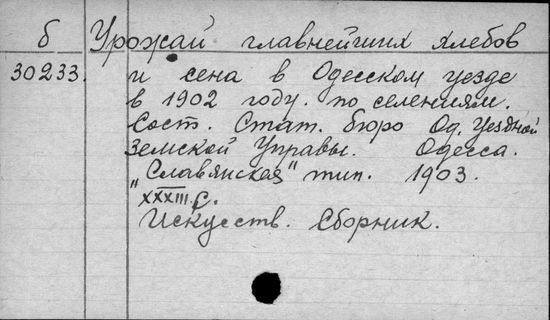 б Урожай главнейших хлебов
30233. и сена в Одесском уезде
в 1902 году. по селениям.
Сост. Стат. бюро Од. Уездной
Земской Управы. Одесса.
"Славянская" тип. 1903.
XXXIII с.
Искусств. Сборник.